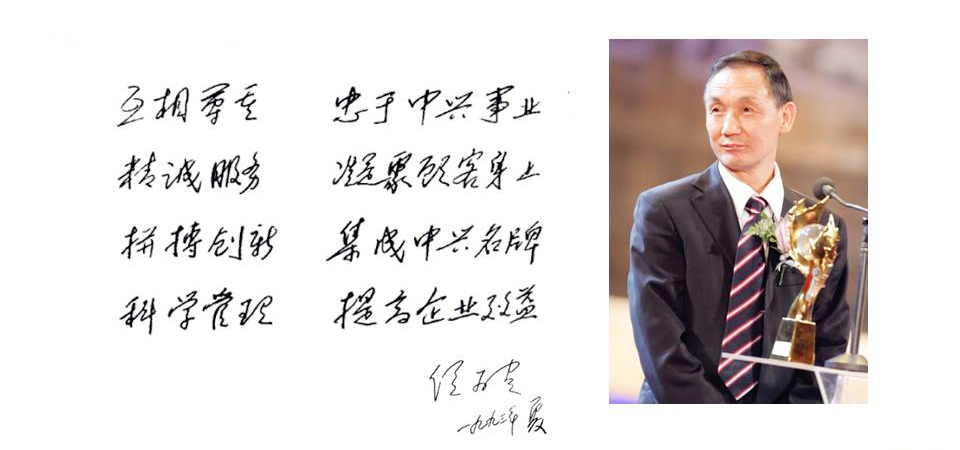 互相尊重 忠于中兴事业
精诚服务 凝聚顾客身上
拼搏创新 集成中兴名牌
科学管理 提高企业效益
侯为贵
一九九三年夏